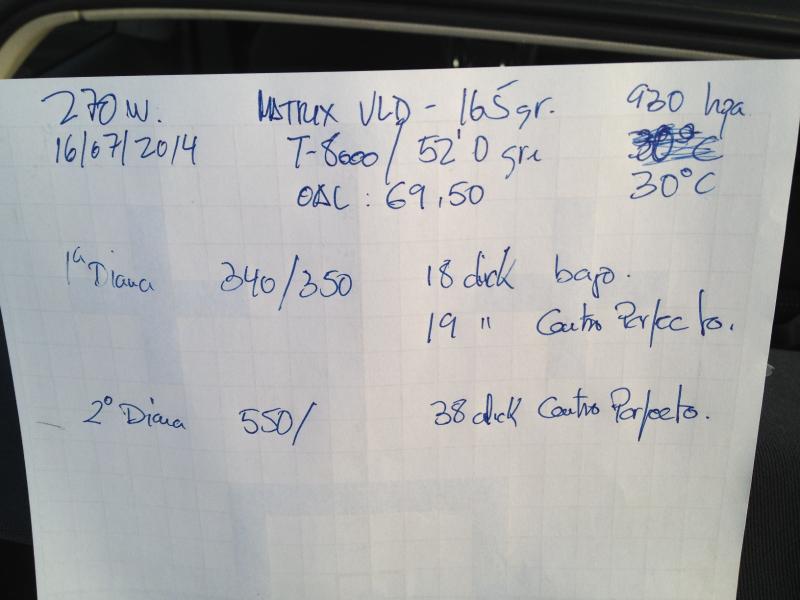 270 W. MATRIX VLD - 165 gr. 930 hpa
16/07/2014 T-8000 / 52'0 grs 30°C
OAL : 69,50 30°C
1ª Diana 340/350 18 click bajo.
19 " Centro Perfecto.
2º Diana 550/ 38 click Centro Perfecto.